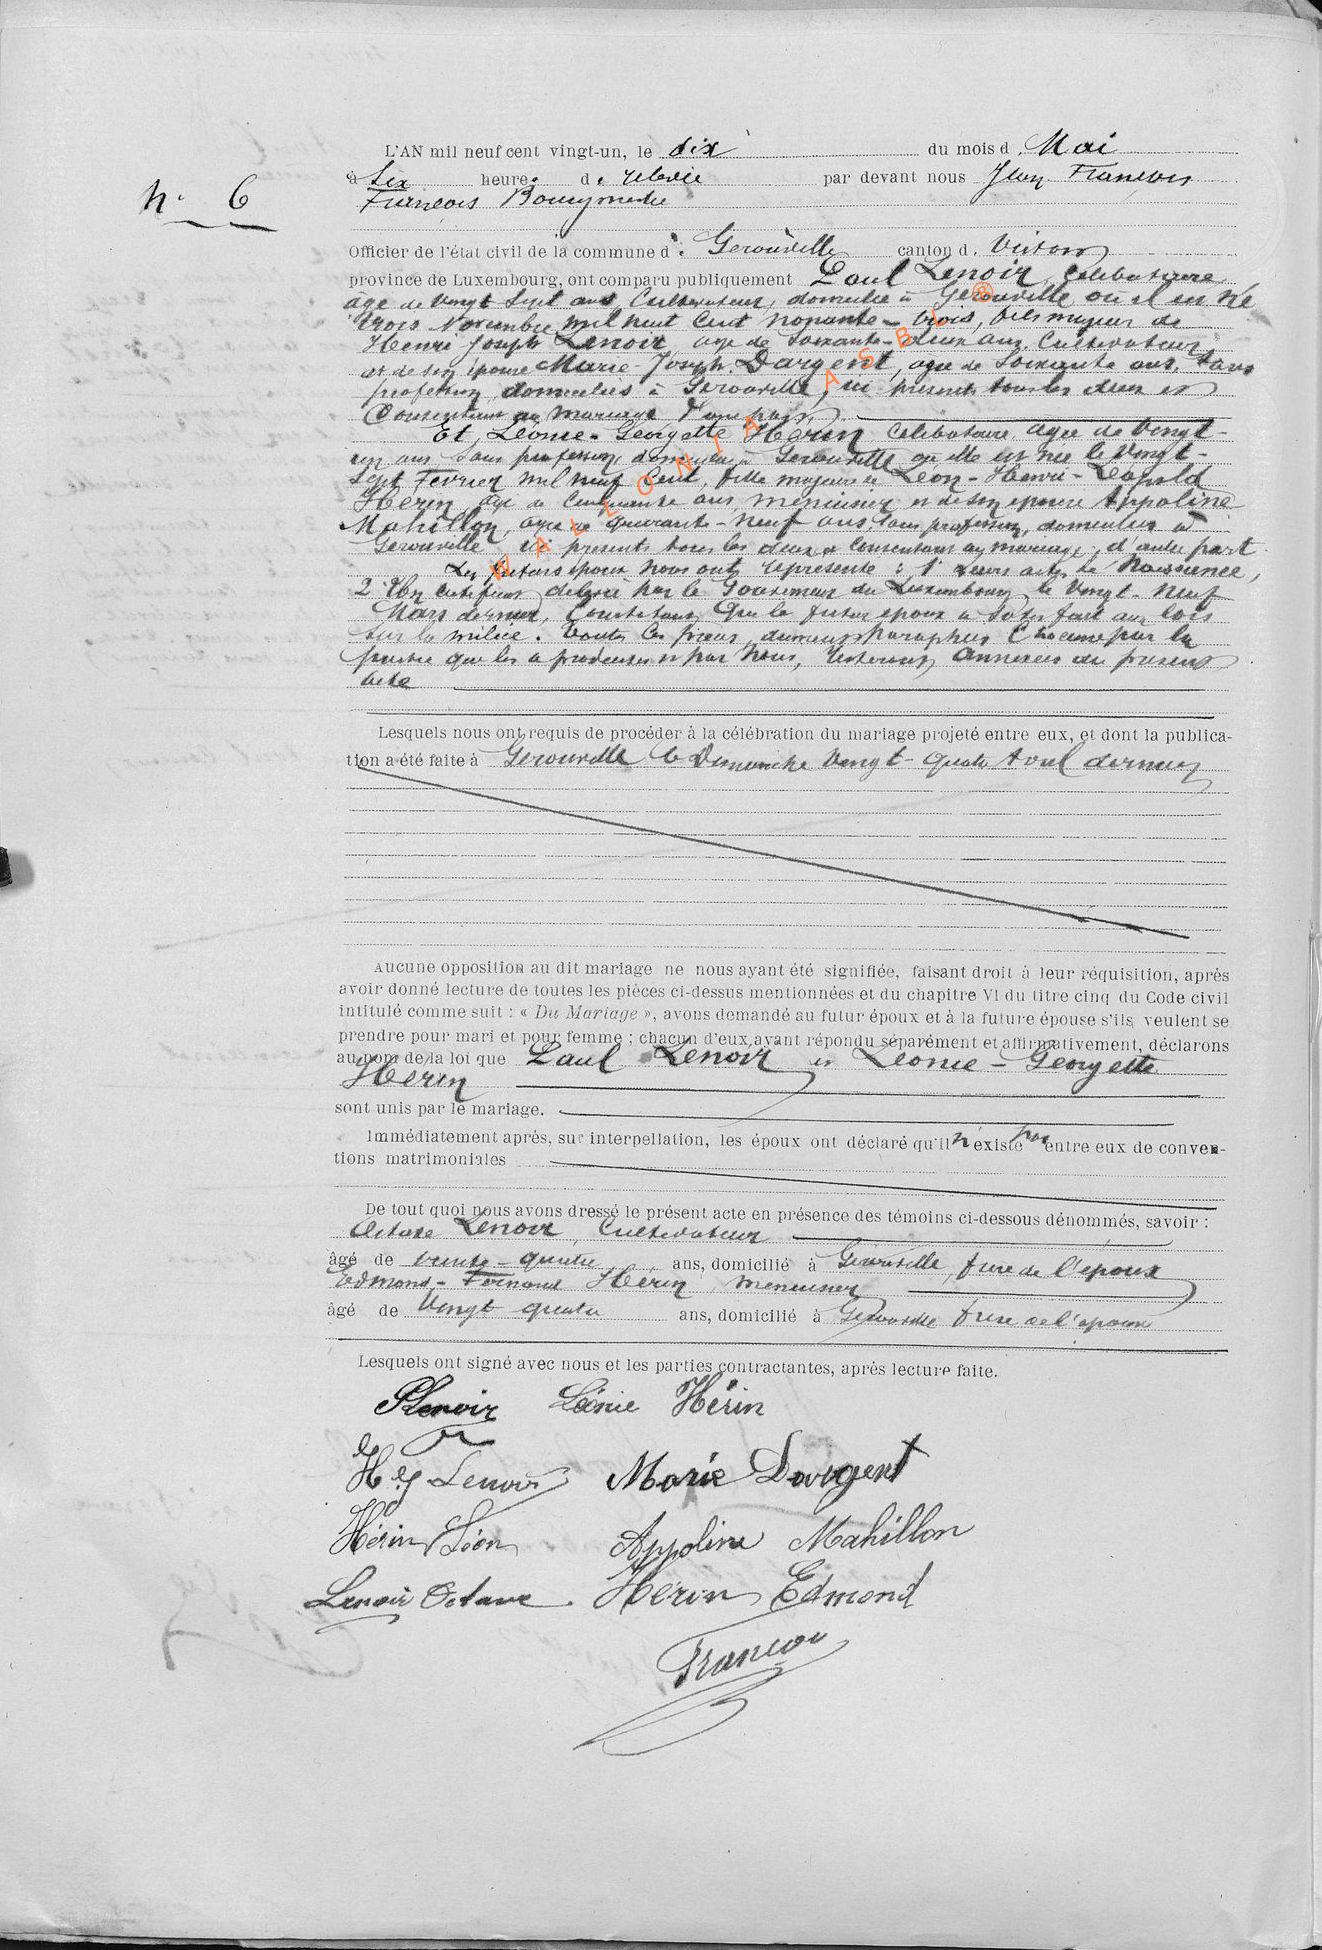 N° 6
L'AN mil neuf cent vingt-un, le dix du mois d. Mai
à Six heure. d. relevée par devant nous Jean François
François Bourgmestre
Officier de l'état civil de la commune d. Gerouville canton d. Virton
province de Luxembourg, ont comparu publiquement Paul Lenoir, celibataire
agé de vingt Sept ans, Cultivateur, domicilié à Gerouville où il est né
trois Novembre mil huit Cent nonante-trois, fils majeur de
Henri Joseph Lenoir agé de Soixante-deux ans, Cultivateur
et de son épouse Marie-Joseph Dargent, agée de Soixante ans, sans
profession, domiciliés à Gerouville, ici présents tous les deux et
Consentant au mariage d'une part,
Et, Léonie-Georgette Hérin Celibataire, agée de vingt-
un ans Sans profession, domiciliée à Gerouville où elle est née le vingt-
Sept Fevrier mil neuf Cent, fille majeure de Léon-Henri-Léopold
Hérin, agé de Cinquante ans, menuisier et de son épouse Appoline
Mahillon, agée de quarante-neuf ans, sans profession, domiciliés à
Gerouville, ici présents tous les deux et Consentant au mariage, d'autre part.
Les futurs époux nous ont représenté : 1° Leurs actes de Naissance,
2° Un certificat délivré par le Gouverneur du Luxembourg le vingt-neuf
Mars dernier, Constatant que le futur époux a satisfait aux lois
sur la milice. Toutes ces pièces, dument paraphées Chacune par la
partie qui les a produites et par Nous, resteront annexées au présent
acte
Lesquels nous ont requis de procéder à la célébration du mariage projeté entre eux, et dont la publica-
tion a été faite à Gerouville le Dimanche vingt-quatre Avril dernier
Aucune opposition au dit mariage ne nous ayant été signifiée, faisant droit à leur réquisition, après
avoir donné lecture de toutes les pièces ci-dessus mentionnées et du chapitre VI du titre cinq du Code civil
intitulé comme suit : « Du Mariage », avons demandé au futur époux et à la future épouse s'ils veulent se
prendre pour mari et pour femme ; chacun d'eux ayant répondu séparément et affirmativement, déclarons
au nom de la loi que Paul Lenoir et Léonie-Georgette
Hérin
sont unis par le mariage.
Immédiatement après, sur interpellation, les époux ont déclaré qu'il n'existe pas entre eux de conven-
tions matrimoniales
De tout quoi nous avons dressé le présent acte en présence des témoins ci-dessous dénommés, savoir :
Octave Lenoir, Cultivateur
âgé de trente-quatre ans, domicilié à Gerouville, frère de l'époux
Edmond-Fernand Hérin, menuisier
âgé de vingt quatre ans, domicilié à Gerouville frère de l'épouse
Lesquels ont signé avec nous et les parties contractantes, après lecture faite.
PLenoir Léonie Hérin
Hri Jh Lenoir Marie Dargent
Hérin Léon Appoline Mahillon
Lenoir Octave Hérin Edmond
François
WALLONIA ASBL ®